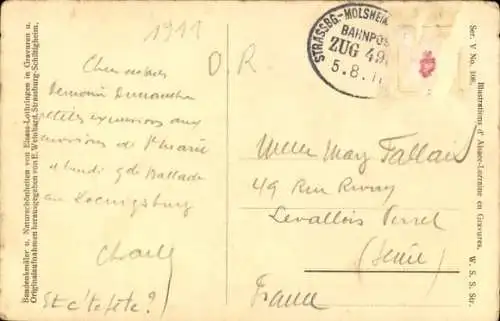 1911
O. R.
Demain Dimanche
petites excursions aux
environs de Ste Marie
et lundi gde Ballade
au Koenigsburg
Charles
Et c'te fête ?
STRASSBG.-MOLSHEIM
BAHNPOS
ZUG 49
5.8.11
Melle May Fallais
49 Rue Rivay
Levallois Perret
(Seine)
France
Baudenkmäler u. Naturschönheiten von Elsass-Lothringen in Gravuren u.
Originalaufnahmen herausgegeben von E. Weisbagd, Strassburg-Schiltigheim.
Ser. V No. 106.
Illustrations d' Alsace-Lorraine en Gravures.
W. S. S. Str.